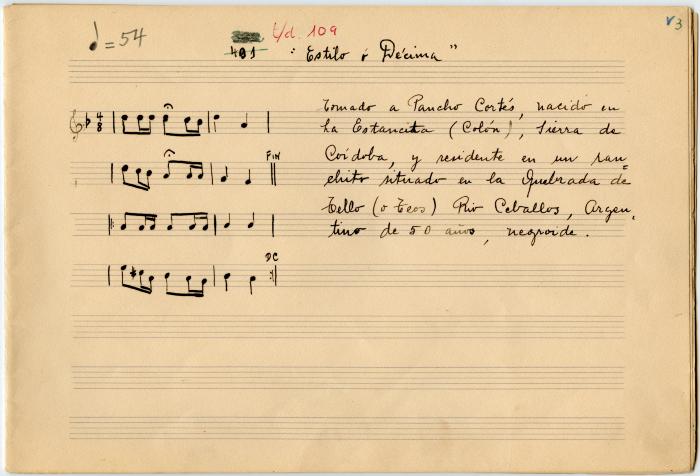 ♩ = 54
t/d. 109
V3
401 "Estilo ó Décima"
Tomado a Pancho Cortés, nacido en
La Estancita (Colón), Sierra de
Córdoba, y residente en un ran-
chito situado en la Quebrada de
Tello (o Teos) Rio Ceballos, Argen-
tino de 50 años, negroide.
4
8
FIN
DC